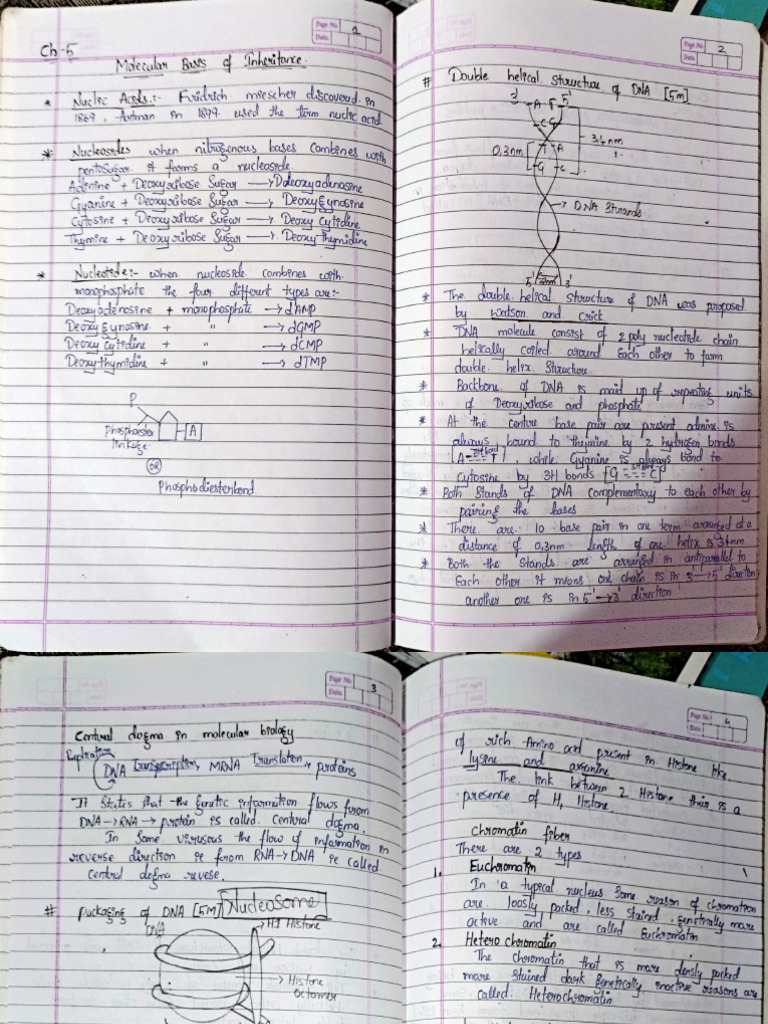 Page No. 1
Date.
Ch-5
Molecular Basis of Inheritance.
* Nucleic Acids:- Fridrich miescher discovered in
1869, Altman in 1899 used the term nucleic acid
* Nucleosides when nitrogenous bases combines with
pentosugar it forms a nucleoside.
Adenine + Deoxyribose Sugar → Deoxyadenosine
Gyanine + Deoxyribose Sugar → Deoxy gynosine
Cytosine + Deoxyribose Sugar → Deoxy Cytidine
Thymine + Deoxyribose Sugar → Deoxy Thymidine
* Nucleotide:- when nucleoside combines with
monophosphate the four different types are:-
Deoxyadenosine + monophosphate → dAMP
Deoxy gynosine + " → dGMP
Deoxy Cytidine + " → dCMP
Deoxy thymidine + " → dTMP
P
Phosphoester
linkage
A
OR
Phosphodiesterbond
Page No. 2
Date.
# Double helical structure of DNA [5m]
3' A T 5'
C G
3.4nm
0.3nm
T A
G C
→ DNA Strands
5' 2nm 3'
* The double helical structure of DNA was proposed
by Watson and Crick
* DNA molecule consist of 2 poly nucleotide chain
helically coiled around each other to form
double helix structure.
* Backbone of DNA is maid up of repeating units
of Deoxyribose and phosphate
* At the centre base pair are present adenine is
always bound to thymine by 2 hydrogen bonds
[A == T], while Gyanine is always bond to
cytosine by 3H bonds [G ≡≡≡ C]
* Both Stands of DNA complementary to each other by
pairing the bases
* There are 10 base pair in one term arranged at a
distance of 0.3nm length of one helix is 3.4nm
* Both the Stands are arranged in antiparallel to
Each other it means one chain is in 3→5' direction
another one is in 5'→3' direction
Page No. 3
Date.
Central dogma in molecular biology
Replication
DNA Transcription, MRNA Translation, proteins
It States that the genetic information flows from
DNA→RNA→protein is called central dogma.
In Some virusous the flow of information in
reverse direction ie from RNA→DNA ie called
central dogma revese.
# packaging of DNA [5M] Nucleosome
DNA
→ H1 Histone
→ Histone
Octamer
Page No. 4
Date.
of rich Amino acid present in Histone like
lysine and arginine
The link between 2 Histone this is a
presence of H1 Histone.
Chromatin fiber
There are 2 types
1. Euchromatin
In a typical nucleus some reason of chromation
are loosly packed, less stained, genetically more
active and are called Euchromatin
2. Hetero chromatin
The chromatin that is more densly packed
more stained dark genetically inactive reasons are
called Heterochromatin